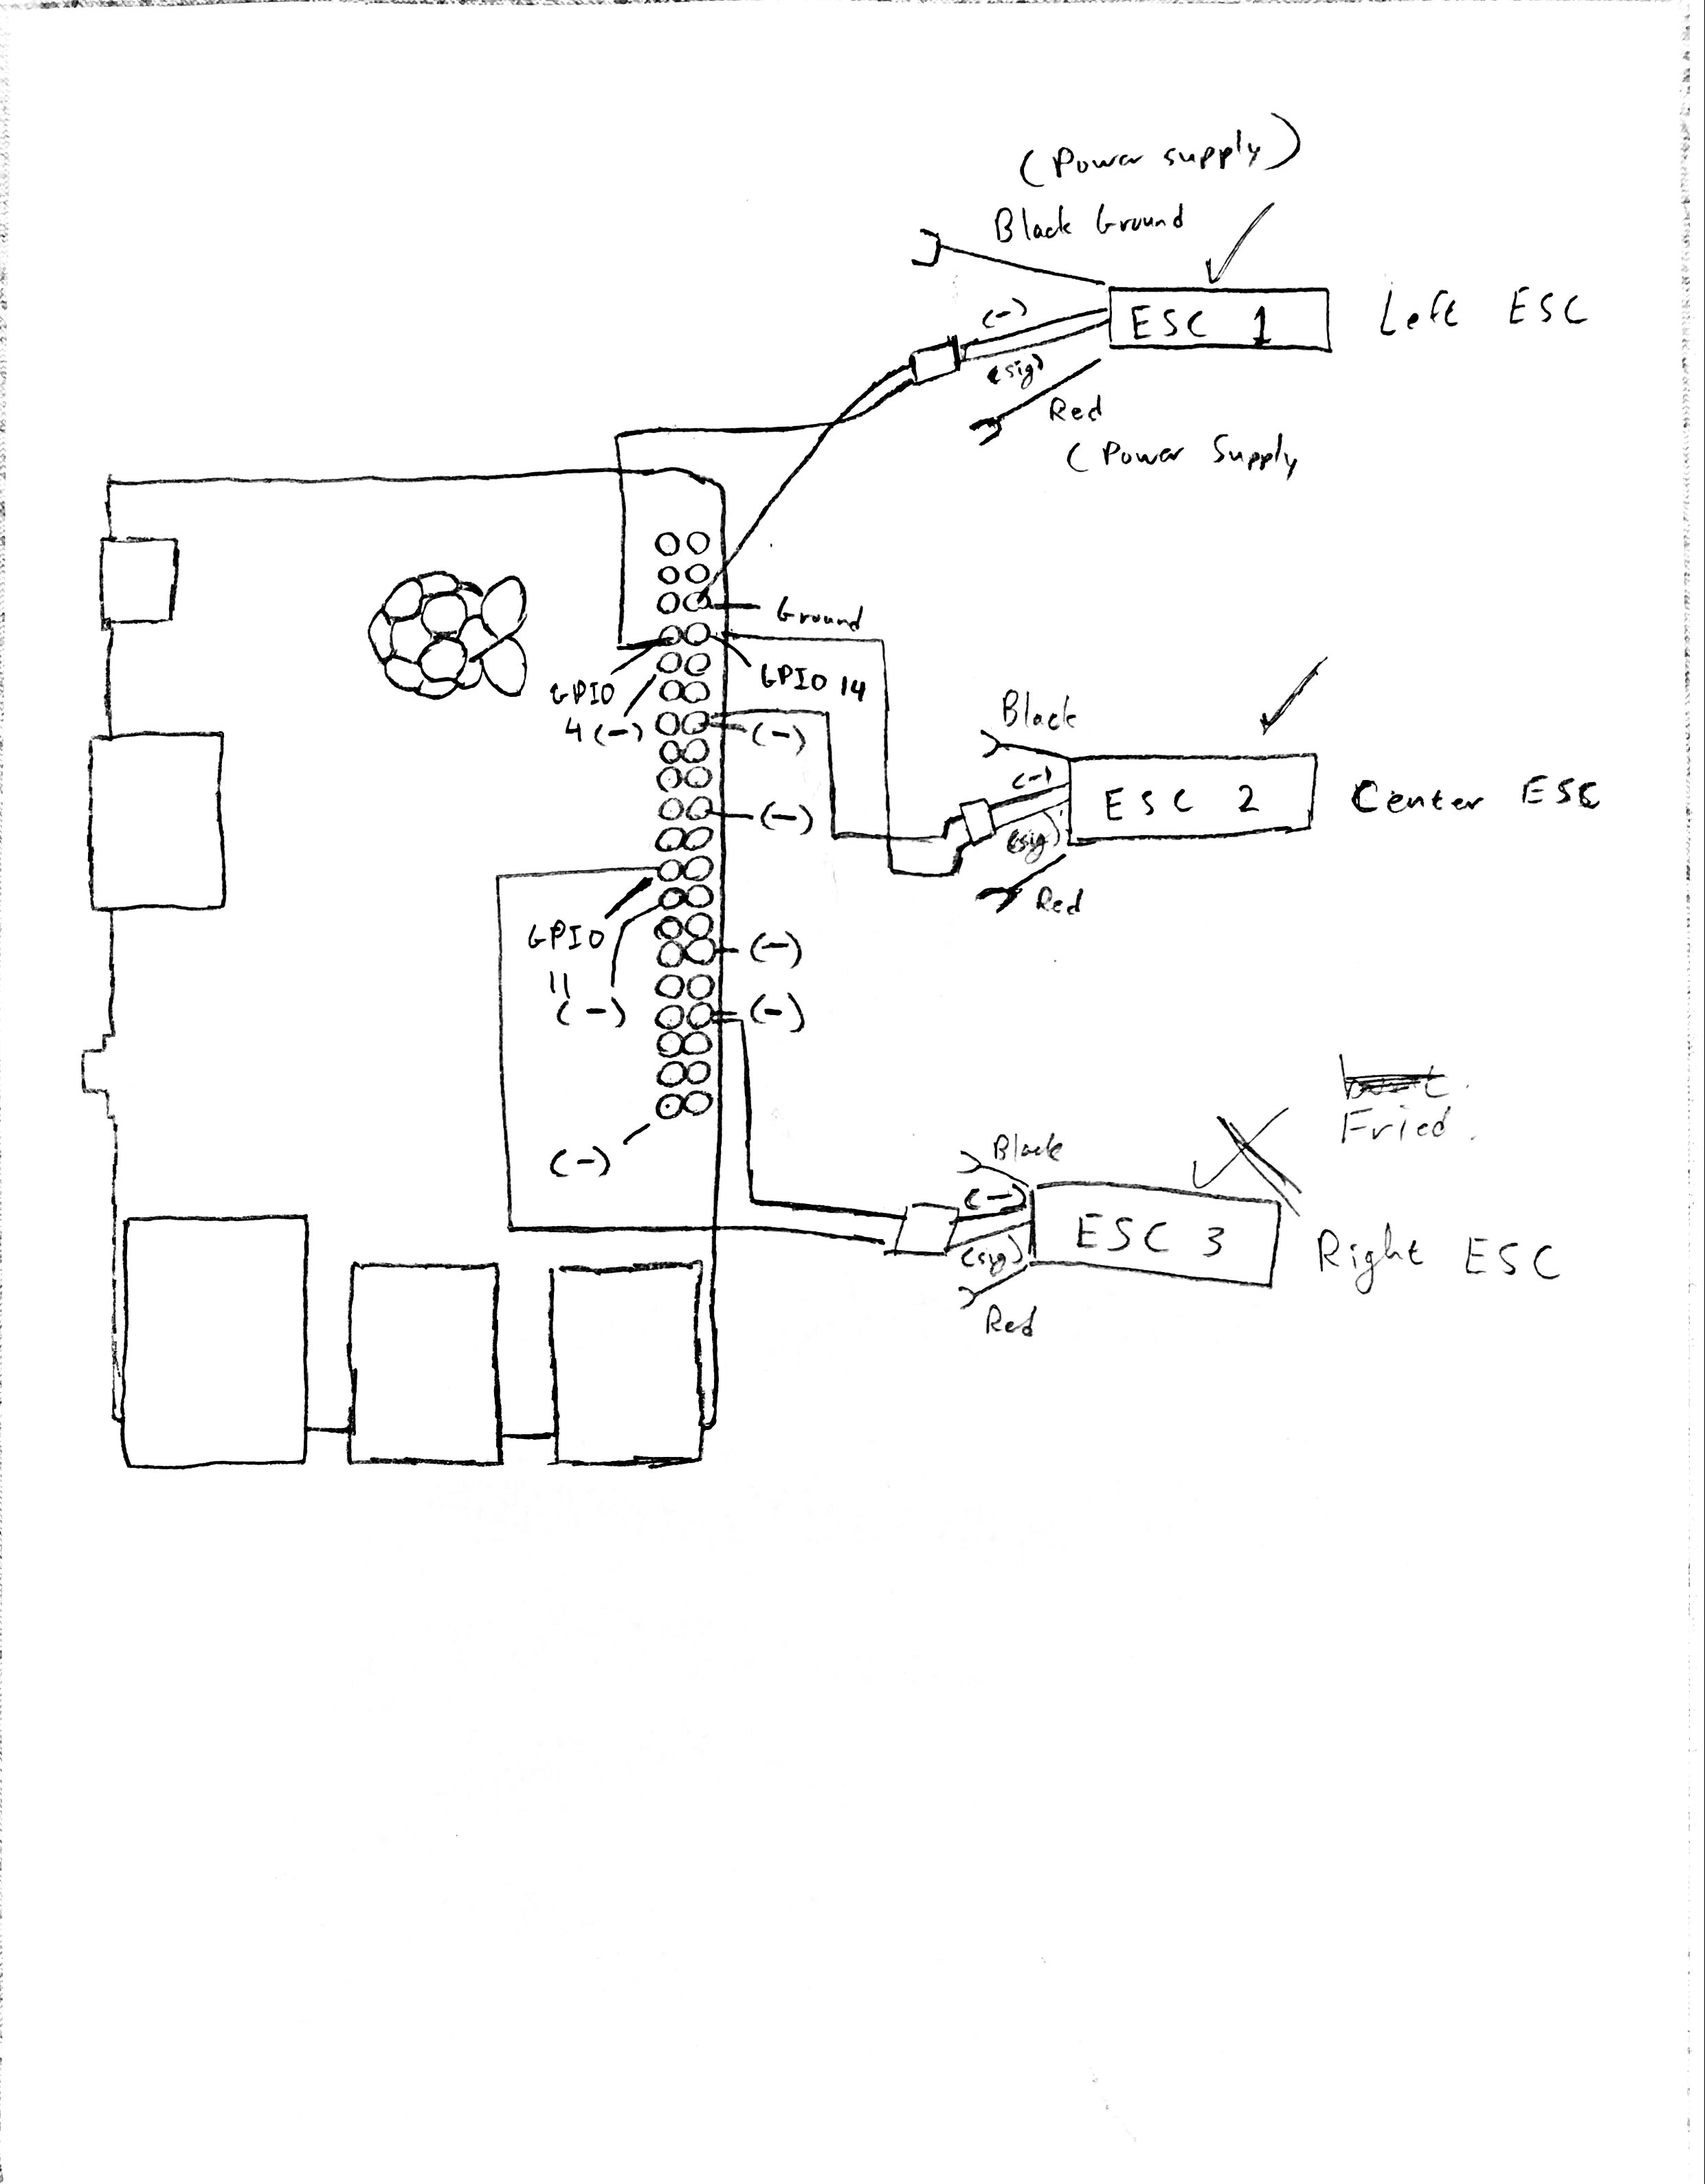 (Power supply)
Black Ground
(-)
ESC 1
Left ESC
(sig)
Red
(Power Supply
Ground
GPIO
4
(-)
GPIO 14
(-)
Black
(-)
ESC 2
Center ESC
(sig)
Red
(-)
GPIO
11
(-)
(-)
(-)
(-)
Fried.
Black
(-)
ESC 3
Right ESC
(sig)
Red